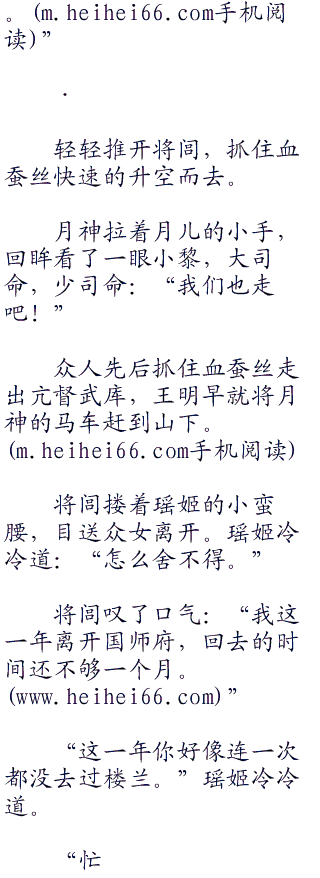 。(m.heihei66.com手机阅
读)”
.
轻轻推开将闾，抓住血
蚕丝快速的升空而去。
月神拉着月儿的小手，
回眸看了一眼小黎，大司
命，少司命：“我们也走
吧！”
众人先后抓住血蚕丝走
出亢督武库，王明早就将月
神的马车赶到山下。
(m.heihei66.com手机阅读)
将闾搂着瑶姬的小蛮
腰，目送众女离开。瑶姬冷
冷道：“怎么舍不得。”
将闾叹了口气：“我这
一年离开国师府，回去的时
间还不够一个月。
(www.heihei66.com)”
“这一年你好像连一次
都没去过楼兰。”瑶姬冷冷
道。
“忙